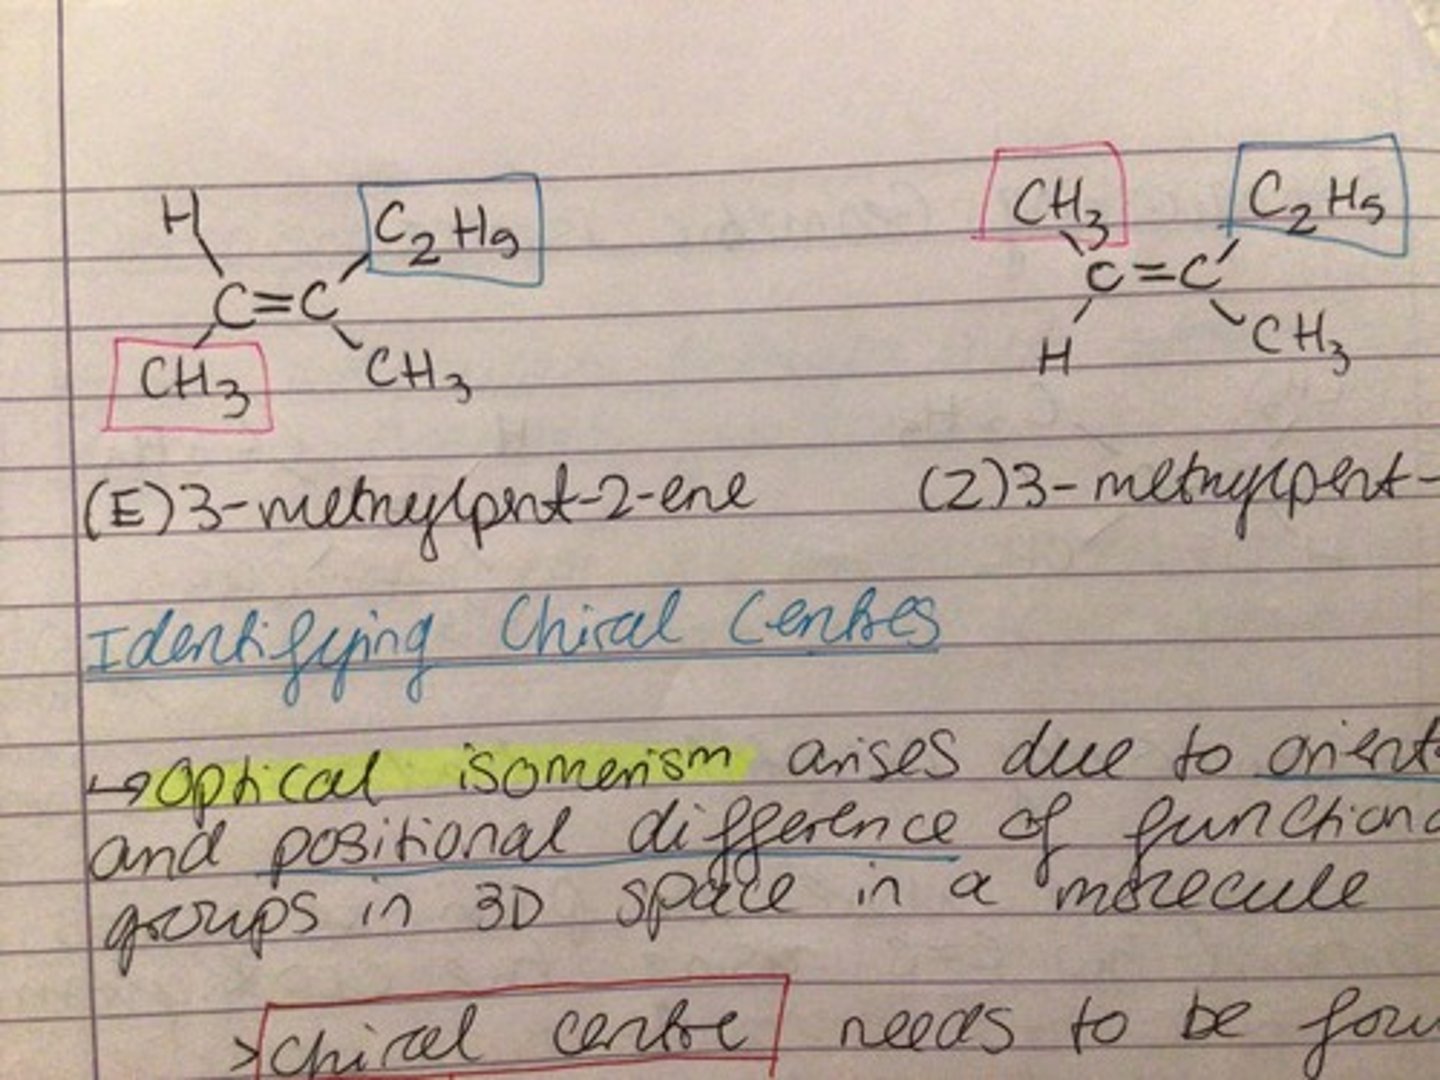 H C₂H₉ CH₃ C₂H₅
C=C C=C
CH₃ CH₃ H CH₃
(E)3-methylpent-2-ene (Z)3-methylpent-
Identifying Chiral Centres
↳ Optical isomerism arises due to orient
and positional difference of function
groups in 3D space in a molecule
>chiral centre needs to be fou